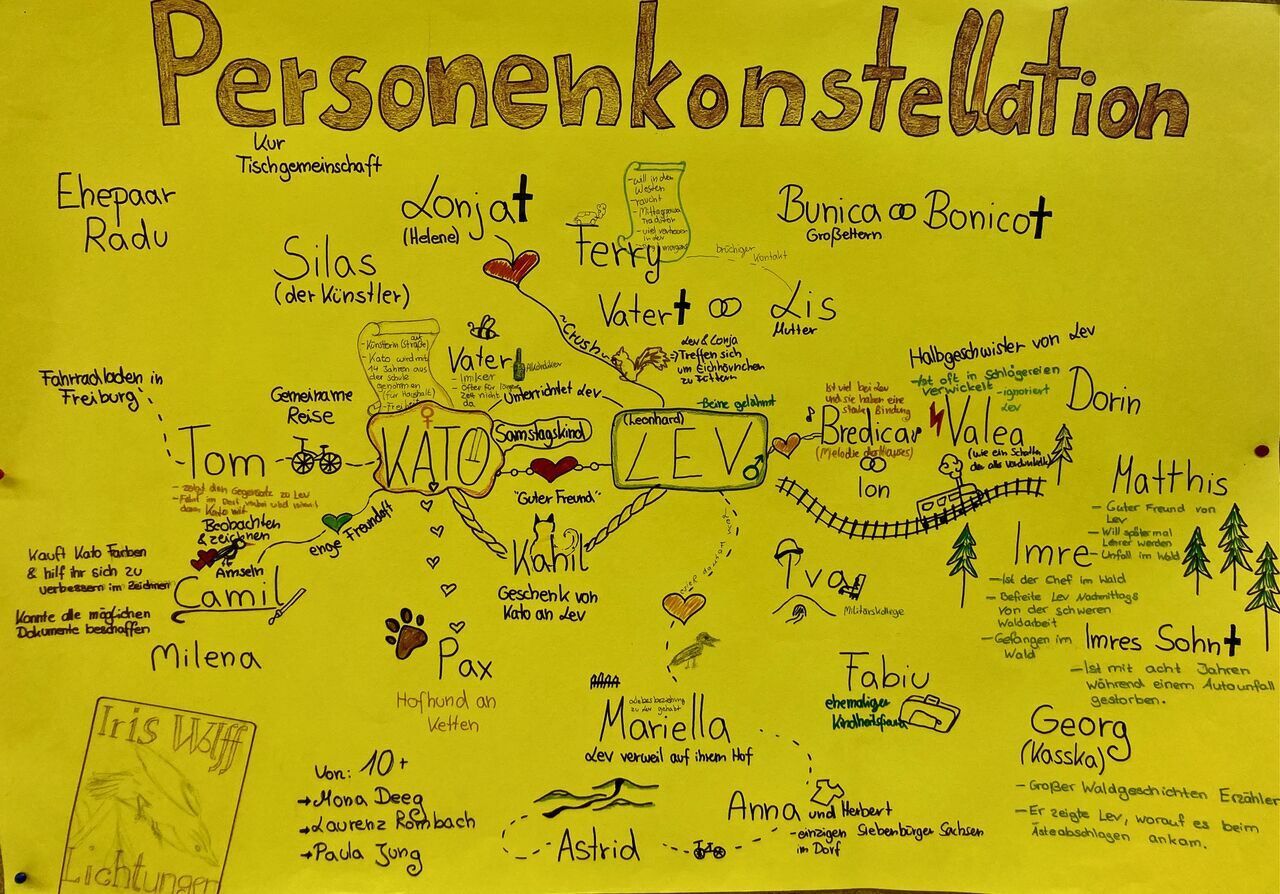 Personenkonstellation
Kur
Tischgemeinschaft
Ehepaar
Radu
Lonja†
(Helene)
Silas
(der Künstler)
- will in den
Westen
- raucht
Ferry
brüchiger
Kontakt
Bunica Bonico†
Großeltern
Vater† Lis
Mutter
~Crush~
Lev & Lonja
Treffen sich
um Eichhörnchen
zu füttern
- Kato wird mit
14 Jahren aus
der Schule
genommen
(für Haushalt)
Vater
- Imker
- Öfter für längere
Zeit nicht
da
Alkoholiker
Unterrichtet Lev
Fahrradladen in
Freiburg
Gemeiname
Reise
Tom
- zeigt den Gegensatz zu Lev
KATO
Samstagskind
"Guter Freund"
(Leonhard)
LEV
- Beine gelähmt
Ist viel bei Lev
und sie haben eine
starke Bindung
Bredicar
(Melodie des Hauses)
Ion
Halbgeschwister von Lev
- Ist oft in Schlägereien
verwickelt - ignoriert
Lev
Valea
(wie ein Schatten
der alles verdunkelt)
Dorin
Matthis
- Guter Freund von
Lev
- Will später mal
Lehrer werden
- Unfall im Wald
Imre
- Ist der Chef im Wald
- Befreite Lev Nachmittags
von der schweren
Waldarbeit
- Gefangen im
Wald
Imres Sohn†
- Ist mit acht Jahren
während einem Autounfall
gestorben.
Georg
(Kasska)
- Großer Waldgeschichten Erzähler
- Er zeigte Lev, worauf es beim
Ästeabschlagen ankam.
Beobachten
& zeichnen
Amseln
enge Freundschaft
Kauft Kato Farben
& hilf ihr sich zu
verbessern im Zeichnen
Konnte alle möglichen
Dokumente beschaffen
Camil
Milena
Kahil
Geschenk von
Kato an Lev
Pax
Hofhund an
Ketten
Iva
Militärkollege
Fabiu
ehemaliger
Kindheitsfreund
Mariella
Lev verweil auf ihrem Hof
Anna und Herbert
- einzigen Siebenbürger Sachsen
im Dorf
Astrid
Von: 10+
→ Mona Deeg
→ Laurenz Rombach
→ Paula Jung
Iris Wolff
Lichtungen